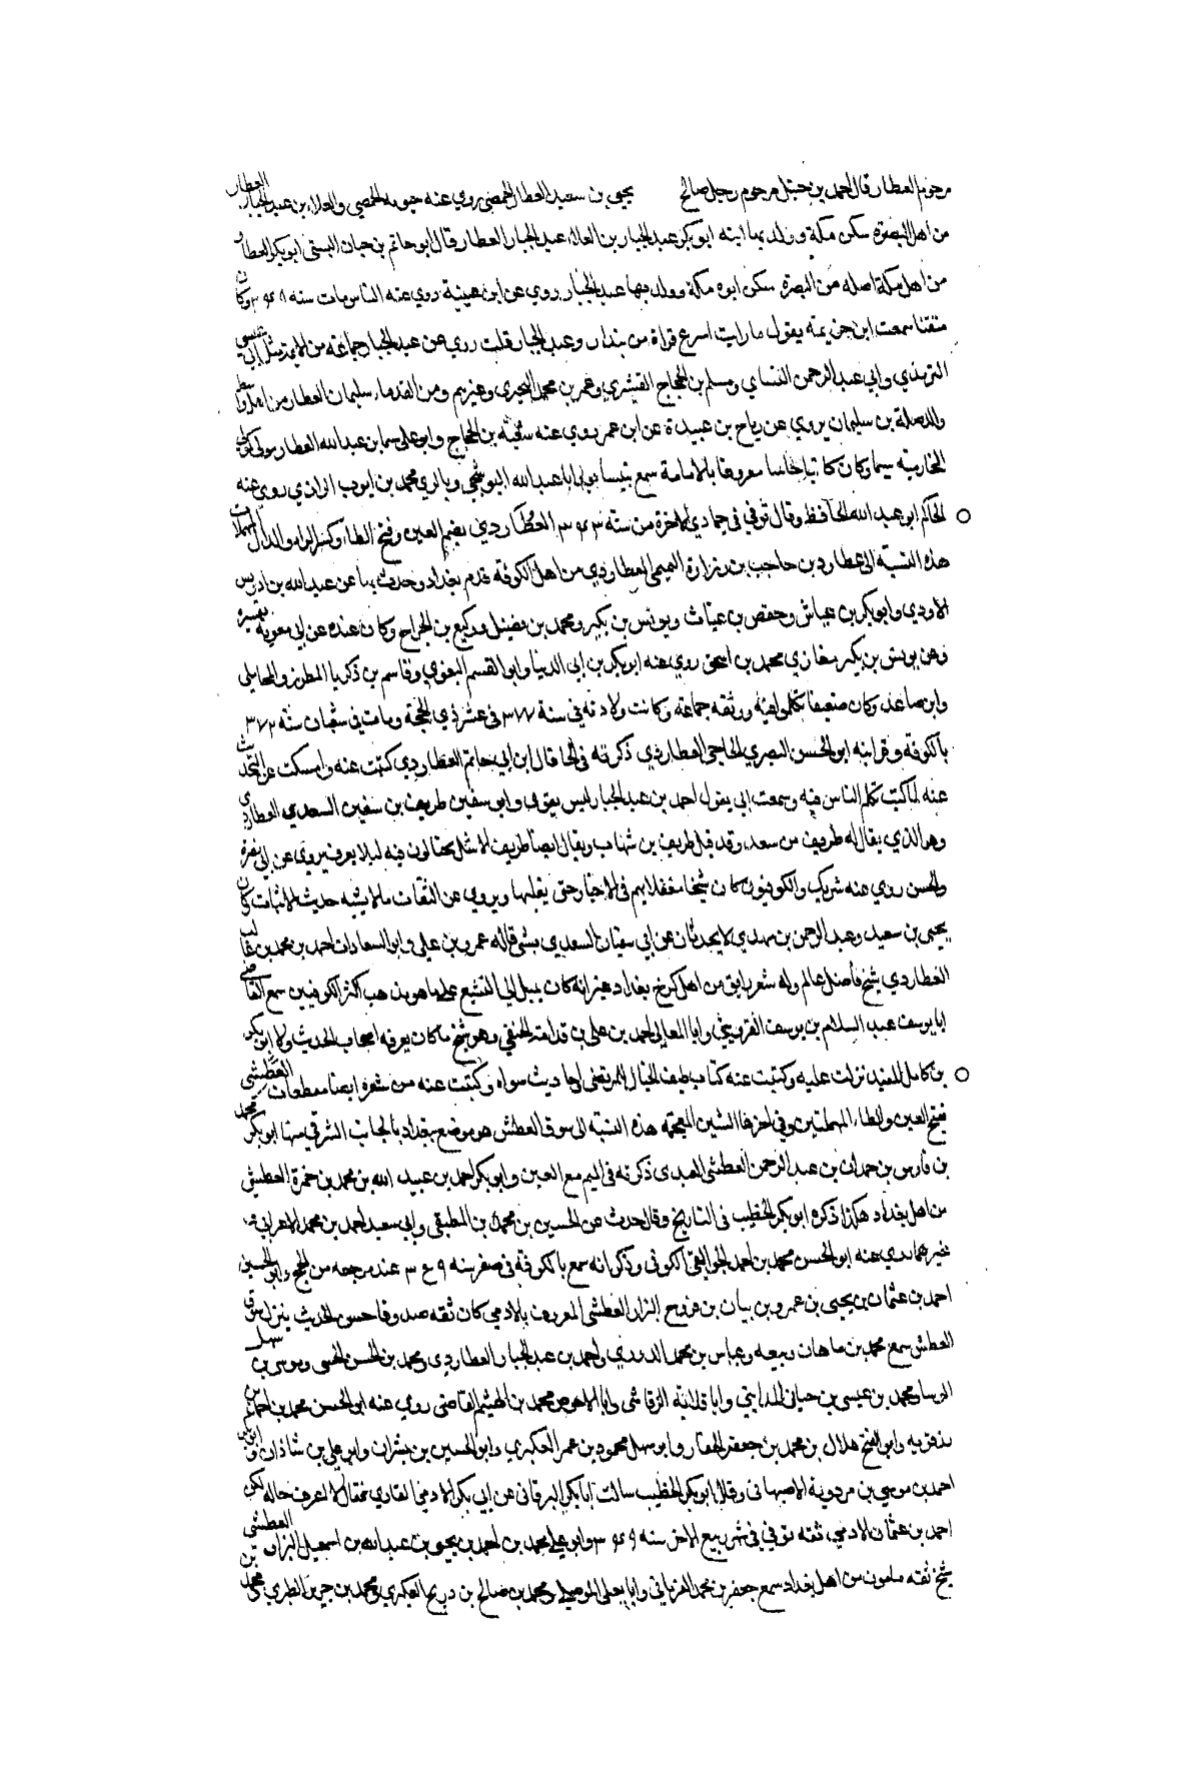 مرحوم العطار قال احمد بن حنبل مرحوم رجل صالح يحيى بن سعيد العطار الحمصي روي عنه حيوه الحمصي والعلاء بن عبد الجبار العطار
من اهل البصرة سكن مكة وولد بها ابنه ابو بكر عبد الجبار بن العلاء عبد الجبار العطار قال ابو حاتم بن حبان البستي ابو بكر العطار
من اهل مكة اصله من البصرة سكن ابوه مكة وولد بها عبد الجبار روي عن ابن عيينة روي عنه الناس مات سنه وكان
متقنا سمعت ابن خزيمه يقول ما رايت اسرع قراة من بندار وعبد الجبار قلت روي عن عبد الجبار جماعة من الايمة مثل ابي عيسى
الترمذي وابي عبد الرحمن النساي ومسلم بن الحجاج القشيري وعمر بن محمد البجيري وغيرهم ومن القدماء سليمان العطار من اهل واسط
والد صلة بن سليمان يروي عن رياح بن عبيدة عن ابن عمر روي عنه شعبه بن الحجاج وابو علي بن عبد الله العطار مولى
وكان كاتبا معروفا بالامامة سمع بنيسابور ابا عبد الله البوشنجي وبالري محمد بن ايوب الرازي روي عنه
الحاكم ابو عبد الله الحافظ وقال توفي في جمادي الاخرة من سنه ٣٤٣ العطاردي بضم العين وفتح الطاء وكسر الراء والدال المهملات
هذه النسبة الى عطارد بن حاجب بن زرارة التميمي العطاردي من اهل الكوفة قدم بغداد وحدث بها عن عبد الله بن ادريس
الاودي وابو بكر بن عياش وحفص بن غياث ويونس بن بكير ومحمد بن فضيل ووكيع بن الجراح وكان عنده عن ابي معوية تفسيره
وعن يونس بن بكير مغازي محمد بن اسحق روي عنه ابو بكر بن ابي الدنيا وابو القسم البغوي وقاسم بن زكريا المطرز والمحاملي
وابن صاعد وكان ضعيفا تكلموا فيه ووثقه جماعة وكانت ولادته في سنة ١٧٧ في عشر ذي الحجة ومات في شعبان سنة ٢٧٢
بالكوفة وقرابته ابو الحسن البصري الحاجبي العطاردي ذكرته في الحا قال ابن ابي حاتم العطاردي كتبت عنه وامسكت عن التحديث
عنه لما كتب تكلم الناس فيه وسمعت ابي يقول احمد بن عبد الجبار ليس بقوي وابو سفين طريف بن سفين السعدي العطاردي
وهو الذي يقال له طريف من سعد وقد قيل طريف بن شهاب ويقال ايضا طريف الاشل يحتالون فيه ليلا يعرف يروي عن ابي نضرة
والحسن روي عنه شريك والكوفيون كان شيخا مغفلا يهم في الاخبار حتى يقلبها ويروي عن الثقات ما لا يشبه حديث الاثبات وكان
يحيى بن سعيد وعبد الرحمن بن مهدي لا يحدثان عن ابي سفيان السعدي بشي قاله عمرو بن علي وابو السعادات احمد بن محمد بن غالب
العطاردي شيخ فاضل عالم وله شعر رايق من اهل كرخ بغداد غير انه كان يميل الي التشيع على ما هو مذهب اكثر الكوفيين سمع القاضي
ابا يوسف عبد السلام بن يوسف القزويني وابا المعالي احمد بن علي بن قدامة الحنفي وهو شيخ ما كان يعرفه اصحاب الحديث ابو بكر
بن كامل المفيد نزلت عليه وكتبت عنه كتاب طيف الخيال للمرتضى احاديث سواه وكتبت عنه من شعره ايضا مقطعات العطشي
بفتح العين والطاء المهملتين وفي اخرها الشين المعجمة هذه النسبة الى سوق العطش هو موضع ببغداد بالجانب الشرقي منها ابو بكر محمد
بن فارس بن حمدان بن عبد الرحمن العطشي العبدي ذكرته في الميم مع العين وابو بكر احمد بن عبيد الله بن محمد بن حمزة العطشي
من اهل بغداد هكذا ذكره ابو بكر الخطيب في التاريخ وقال حدث عن الحسين بن محمد بن المطبقي وابي سعيد احمد بن محمد الاعرابي
غيرهما روي عنه ابو الحسن محمد بن احمد الجواليقي الكوفي وذكر انه سمع بالكوفة في صفر سنه ٣٤٩ عند مرجعه من الحج وابو الحسين
احمد بن عثمان بن يحيى بن عمرو بن بيان بن فروخ البزاز العطشي المعروف بالادمي كان ثقه صدوقا حسن الحديث ينزل سوق
العطش سمع محمد بن ماهان زنبقه وعباس بن محمد الدوري واحمد بن عبد الجبار العطاردي ومحمد بن الحسن الحنيني وموسى بن سهل
الوسا ومحمد بن عيسى بن حيان المدايني وابا قلابة الرقاشي وابا الاحوص محمد بن الهيثم القاضي روي عنه ابو الحسن محمد بن احمد بن
رزقويه وابو الفتح هلال بن محمد بن جعفر الحفار وابو سهل محمود بن عمر العكبري وابو الحسين بن بشران وابو علي بن شاذان وابو بكر
احمد بن موسى بن مردوية الاصبهاني وقال ابو بكر الخطيب سالت ابا بكر البرقاني عن ابي بكر الادمي القاري فقال لا اعرف حاله لكن
احمد بن عثمان الادمي ثقه توفي في شهر ربيع الاخر سنه ٣٤٩ وابو علي محمد بن احمد بن يحيى بن عبد الله بن اسمعيل البزاز العطشي
شيخ ثقه مامون من اهل بغداد سمع جعفر بن محمد الفريابي وابا يعلى الموصلي ومحمد بن صالح بن ذريح العكبري ومحمد بن جرير الطبري ومحمد بن